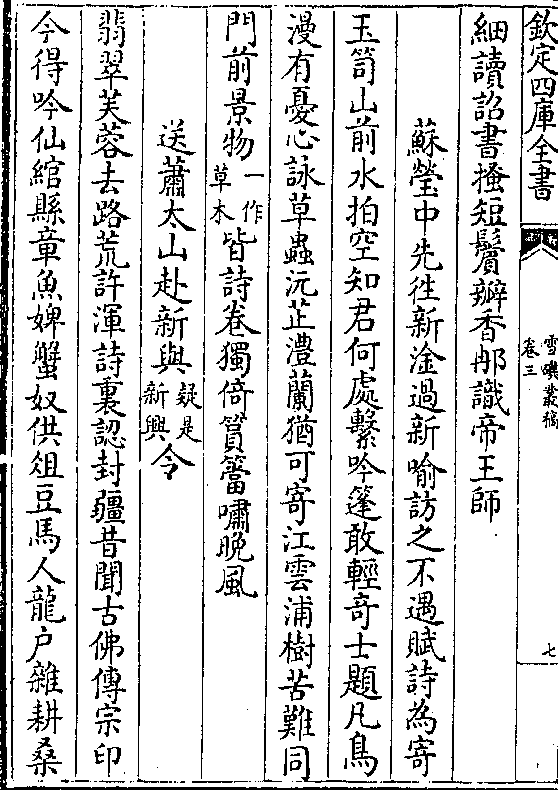 欽定四庫全書
雪磯叢稿
卷三
七
細讀詔書搔短鬢瓣香郍識帝王師
蘇瑩中先徃新淦過新喻訪之不遇賦詩為寄
玉笥山前水拍空知君何處繫吟篷敢輕奇士題凡鳥
漫有憂心詠草蟲沅芷澧蘭猶可寄江雲浦樹苦難同
門前景物一作草木皆詩卷獨倚篔簹嘯晚風
送蕭太山赴新與疑是新興令
翡翠芙蓉去路荒許渾詩裏認封疆昔聞古佛傳宗印
今得吟仙綰縣章魚婢蟹奴供俎豆馬人龍户雜耕桑